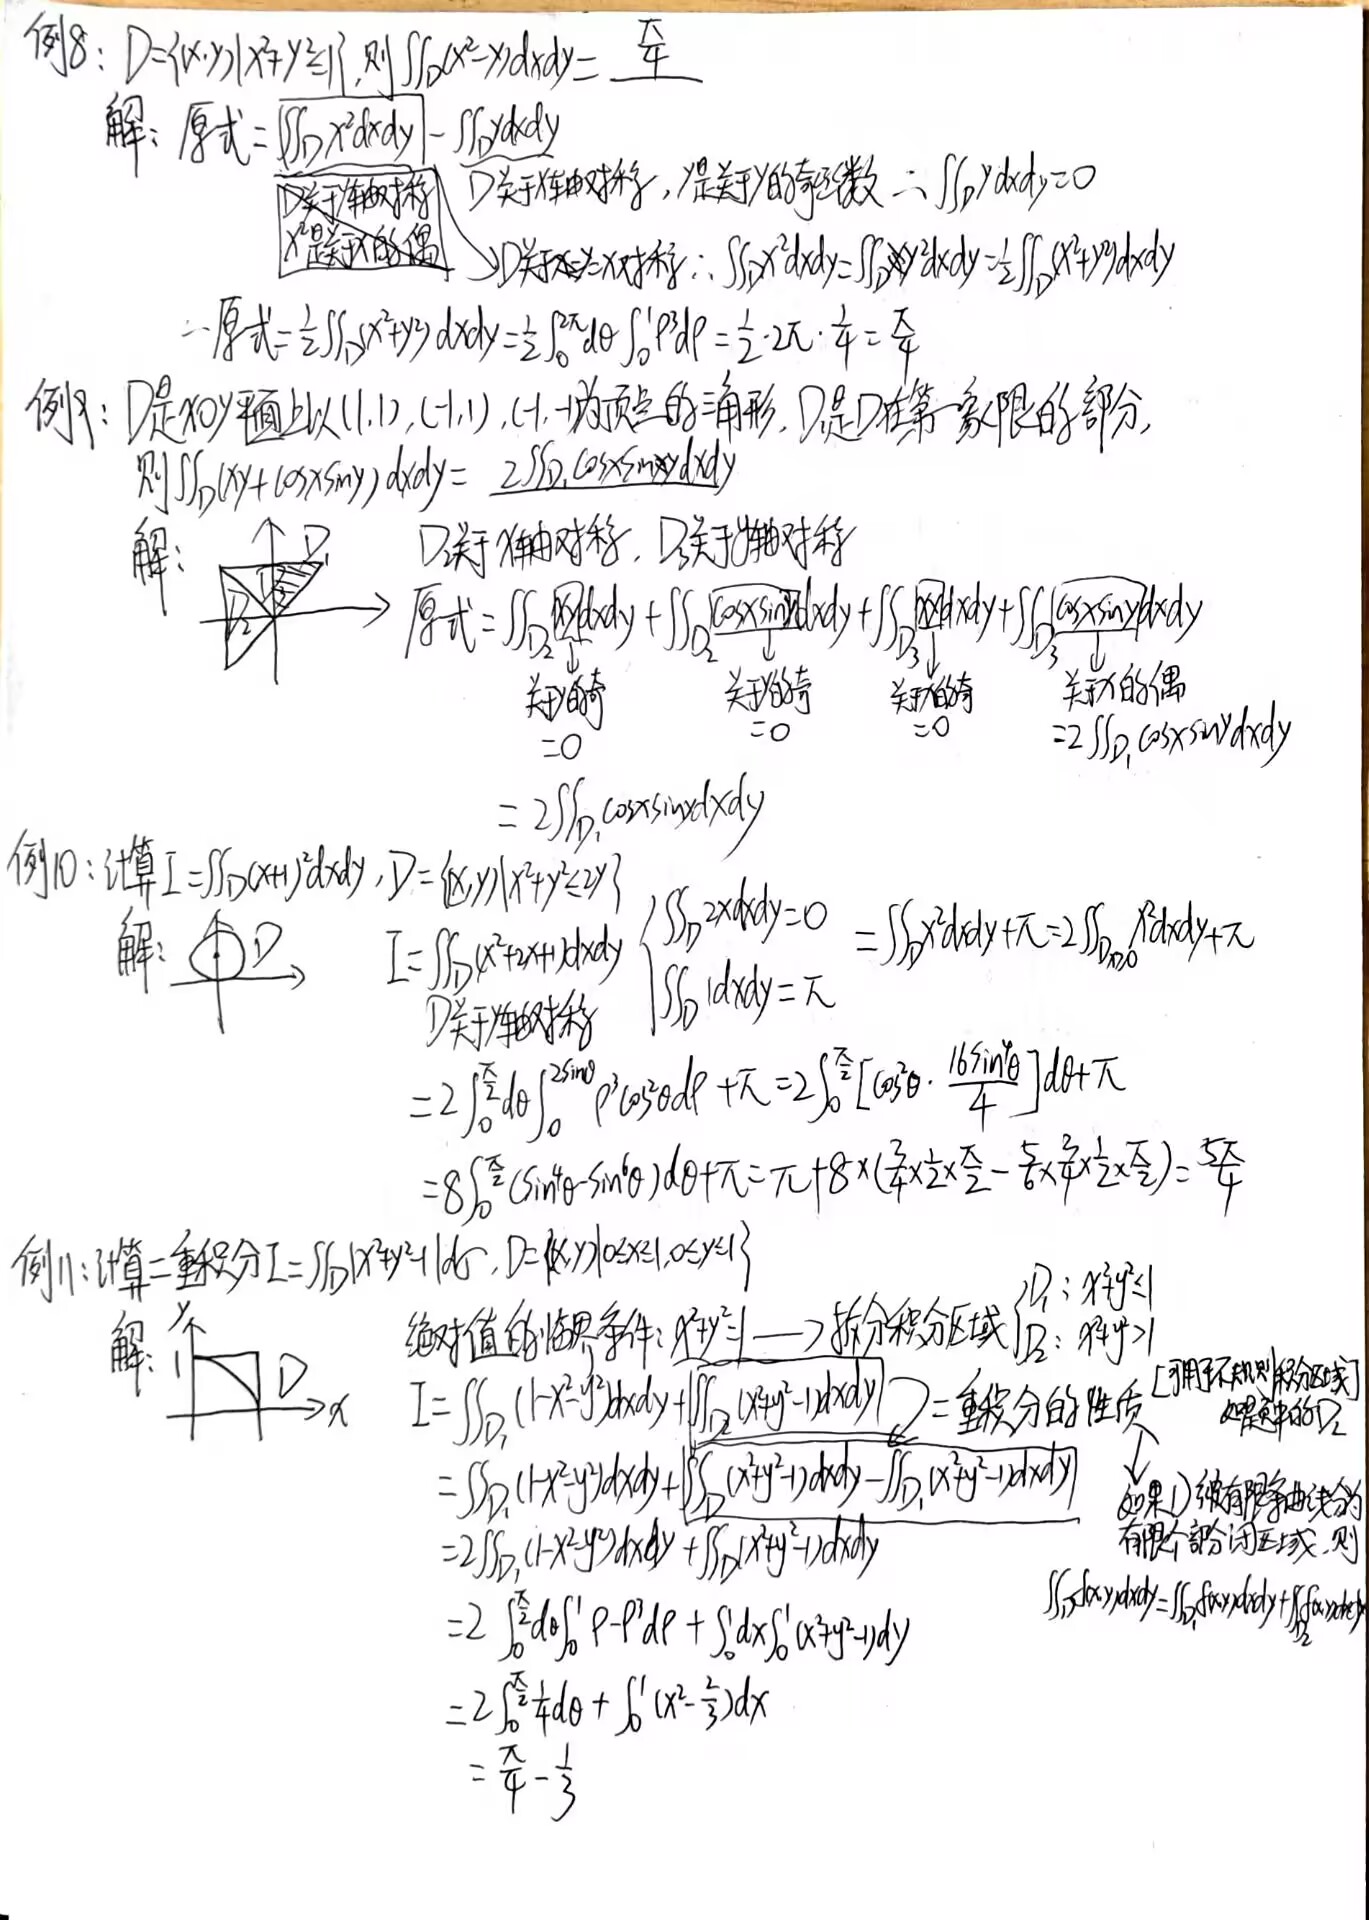 例8: D={(x,y)|x²+y²≤1},则∬_D(x²-y)dxdy= π/4
解: 原式=∬_D x²dxdy-∬_D ydxdy
D关于y轴对称 x²是关于x的偶
D关于x轴对称,y是关于y的奇函数 ∴∬_D ydxdy=0
D关于y=x对称∴∬_D x²dxdy=∬_D y²dxdy=½∬_D(x²+y²)dxdy
∴原式=½∬_D(x²+y²)dxdy=½∫₀^{2π}dθ∫₀¹ρ³dρ=½·2π·¼=π/4
例9: D是xOy平面上以(1,1),(-1,1),(-1,-1)为顶点的三角形,D₁是D在第一象限的部分,
则∬_D(xy+cosxsiny)dxdy= 2∬_{D₁}cosxsinydxdy
解: D₁ D₂
D₂关于x轴对称,D₃关于y轴对称
原式=∬_{D₂}xydxdy+∬_{D₂}cosxsinydxdy+∬_{D₃}xydxdy+∬_{D₃}cosxsinydxdy
关于y的奇 关于y的奇 关于x的奇 关于x的偶
=0 =0 =0 =2∬_{D₁}cosxsinydxdy
=2∬_{D₁}cosxsinydxdy
例10:计算I=∬_D(x+1)²dxdy,D={(x,y)|x²+y²≤2y}
解: D I=∬_D(x²+2x+1)dxdy {∬_D 2xdxdy=0 ∬_D 1dxdy=π =∬_D x²dxdy+π=2∬_{D_{x≥0}}x²dxdy+π
D关于y轴对称
=2∫₀^{π/2}dθ∫₀^{2sinθ}ρ³cos²θdρ+π=2∫₀^{π/2}[cos²θ·16sin⁴θ/4]dθ+π
=8∫₀^{π/2}(sin⁴θ-sin⁶θ)dθ+π=π+8×(¾×½×π/2-5/6×¾×½×π/2)=5π/4
例11:计算二重积分I=∬_D|x²+y²-1|dσ,D={(x,y)|0≤x≤1,0≤y≤1}
解: y 1 D x
绝对值的临界条件:x²+y²=1→拆分积分区域{D₁:x²+y²≤1 D₂:x²+y²>1
I=∬_{D₁}(1-x²-y²)dxdy+∬_{D₂}(x²+y²-1)dxdy 二重积分的性质 [可用于不规则积分区域] 如题中的D₂
=∬_{D₁}(1-x²-y²)dxdy+∬_D(x²+y²-1)dxdy-∬_{D₁}(x²+y²-1)dxdy
如果D被有限条曲线分为
有限个部分闭区域,则
∬_D f(x,y)dxdy=∬_{D₁}f(x,y)dxdy+∬_{D₂}f(x,y)dxdy
=2∬_{D₁}(1-x²-y²)dxdy+∬_D(x²+y²-1)dxdy
=2∫₀^{π/2}dθ∫₀¹ρ-ρ³dρ+∫₀¹dx∫₀¹(x²+y²-1)dy
=2∫₀^{π/2}¼dθ+∫₀¹(x²-⅔)dx
=π/4-1/3